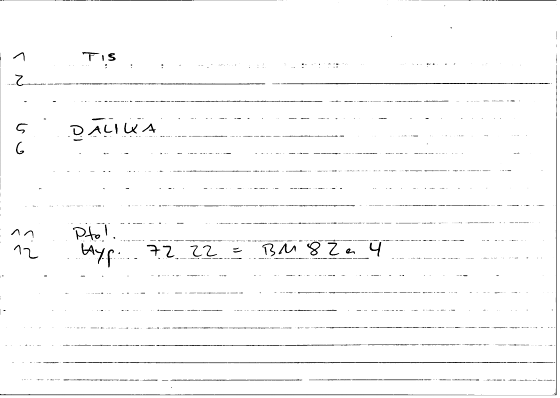 1 TIS
2
5 D̲ĀLIKA
6
11 Ptol.
12 Hyp. 72 22 = BM 82a 4